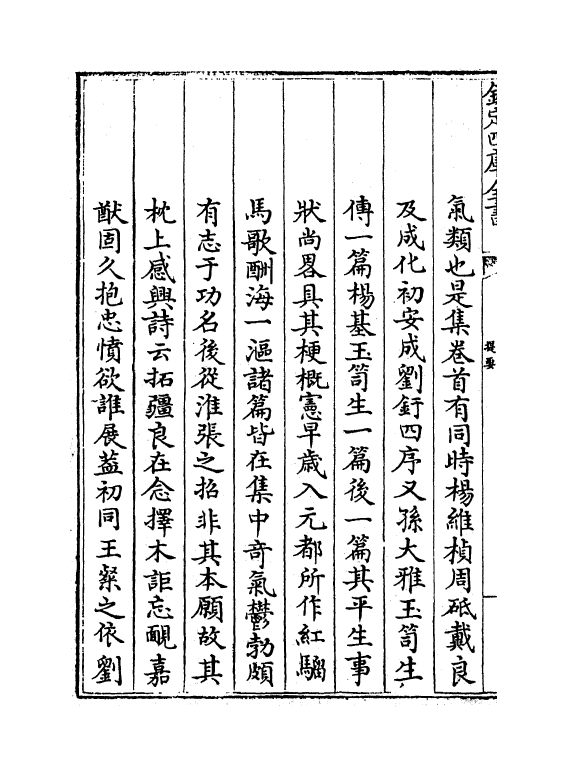 欽定四庫全書
提要
氣類也是集卷首有同時楊維楨周砥戴良
及成化初安成劉釪四序又孫大雅玉笥生
傳一篇楊基玉笥生一篇後一篇其平生事
狀尚畧具其梗概憲早歳入元都所作紅騮
馬歌酬海一漚諸篇皆在集中竒氣鬱勃頗
有志于功名後從淮張之招非其本願故其
枕上感興詩云拓疆良在念擇木詎忘覗嘉
猷固久抱忠憤欲誰展葢初同王粲之依劉